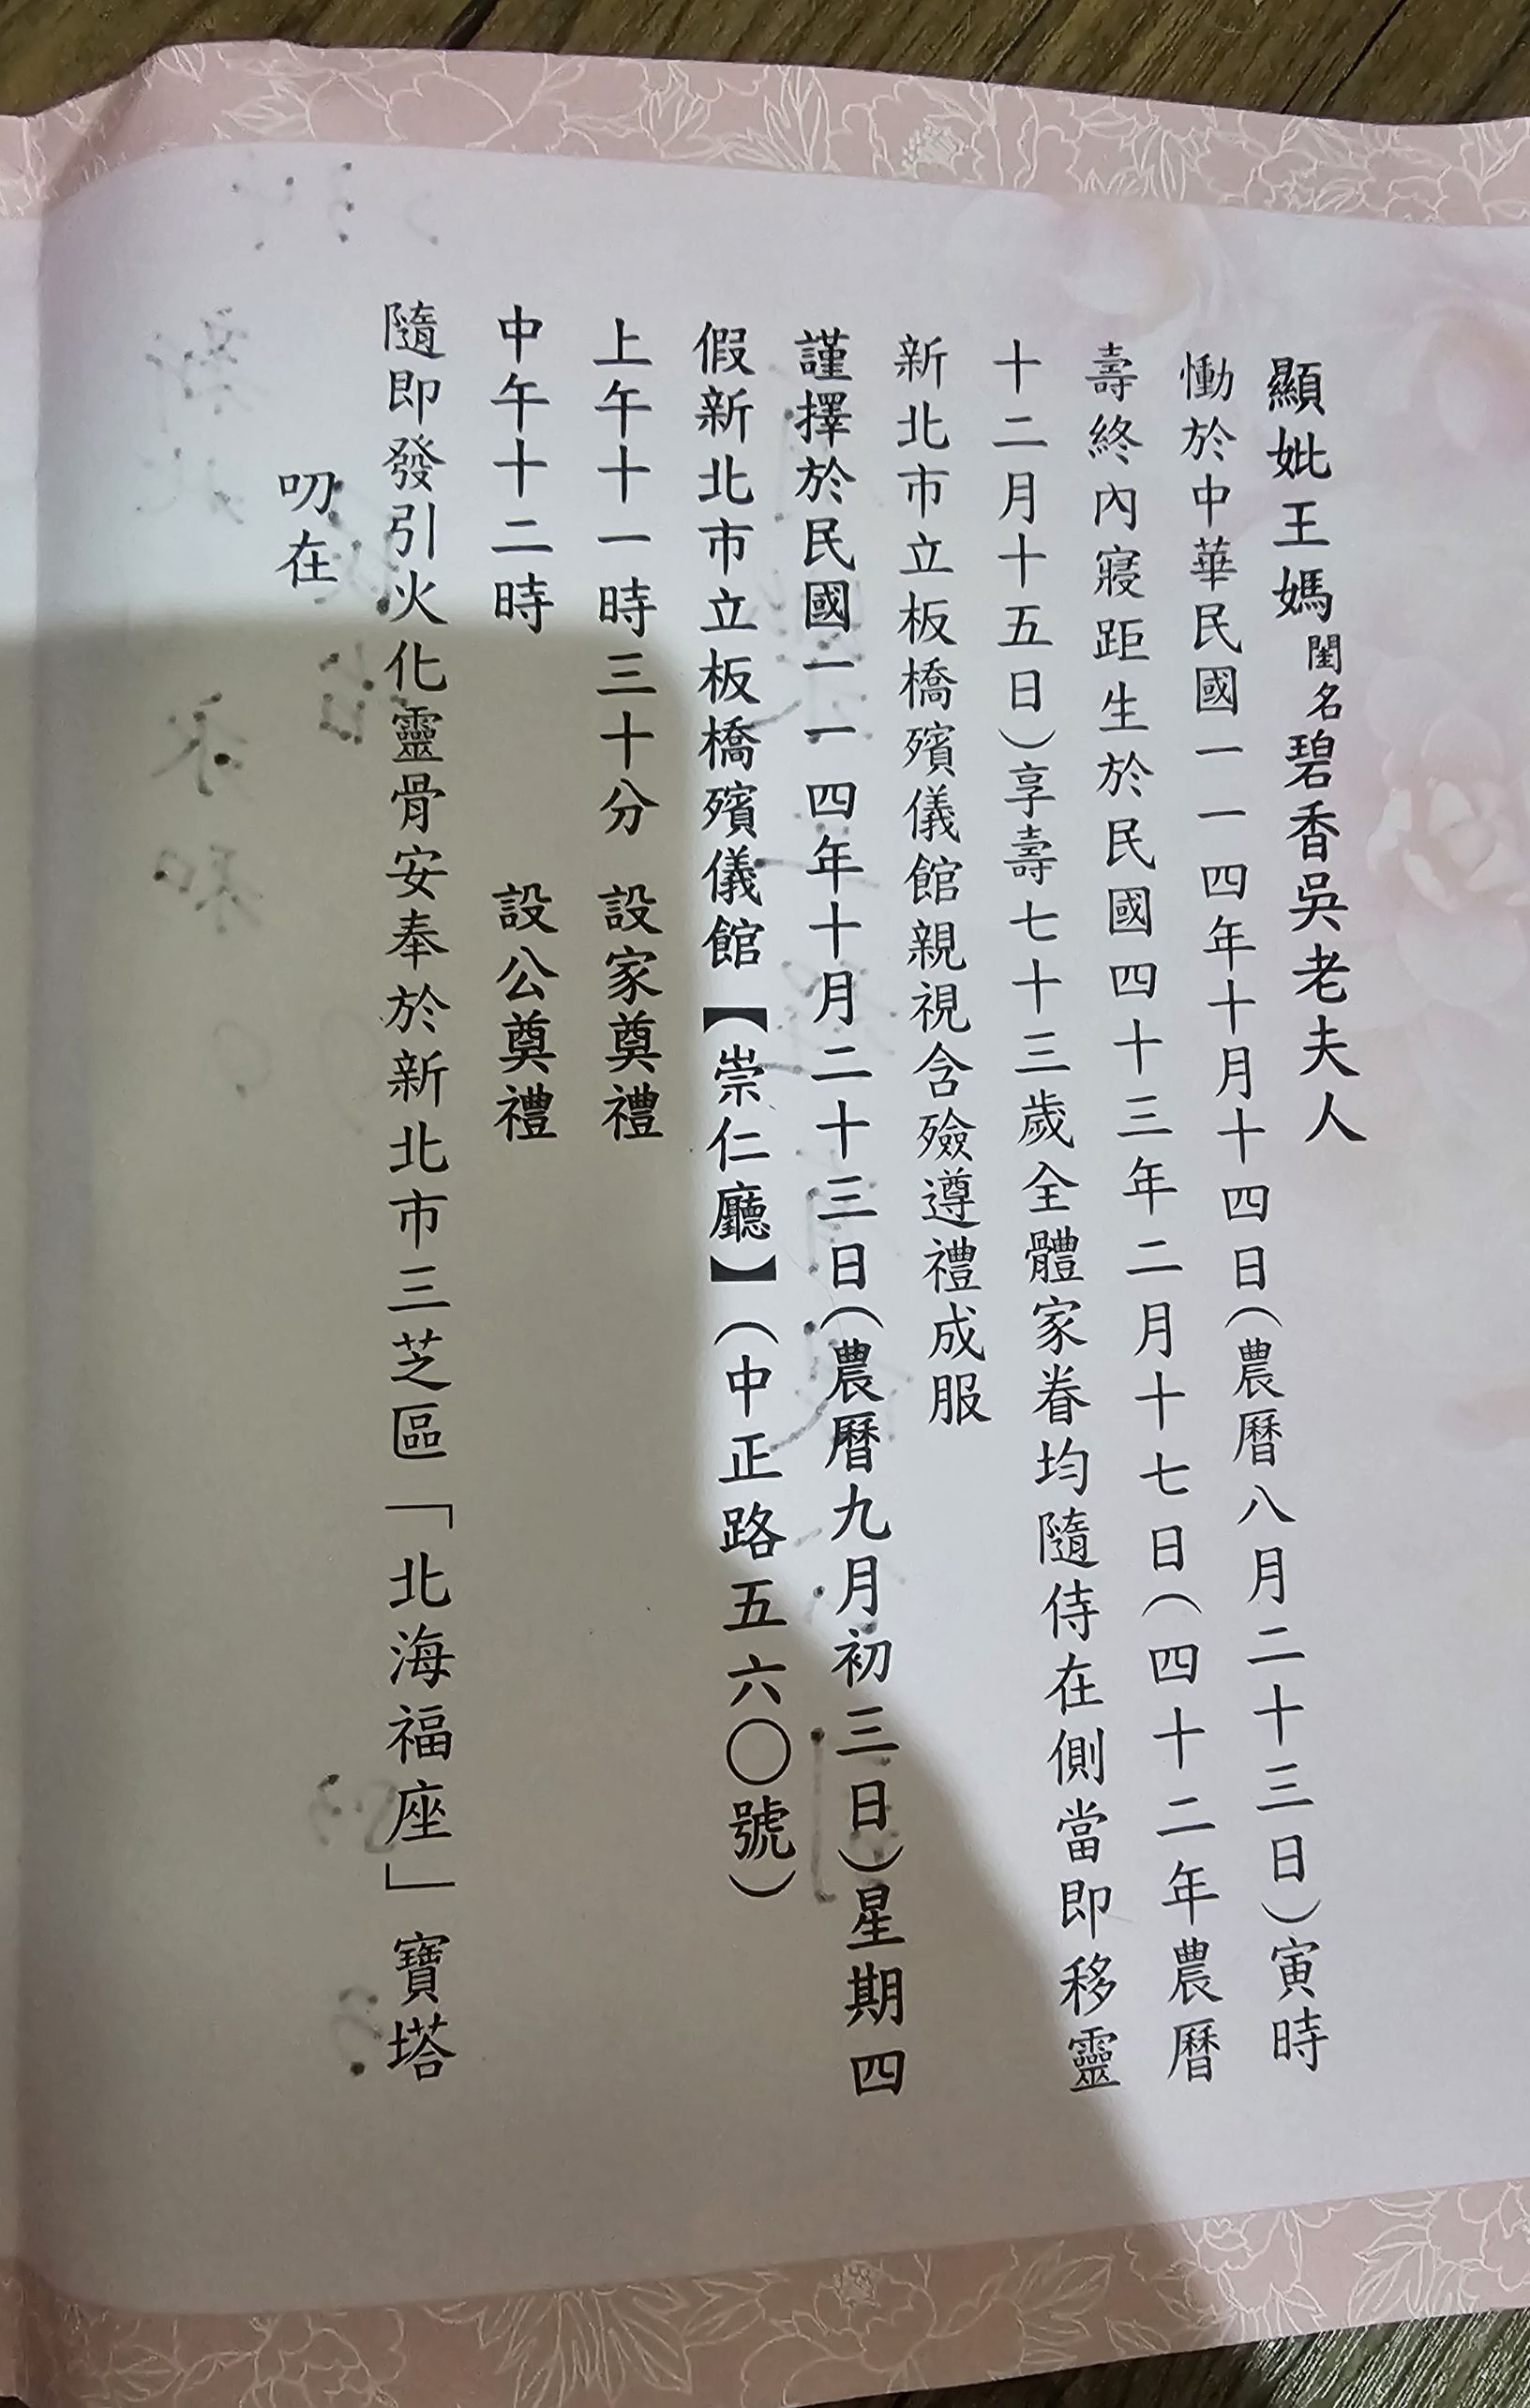 顯妣王媽閨名碧香吳老夫人
慟於中華民國一一四年十月十四日(農曆八月二十三日)寅時
壽終內寢距生於民國四十三年二月十七日(四十二年農曆
十二月十五日)享壽七十三歲全體家眷均隨侍在側當即移靈
新北市立板橋殯儀館親視含殮遵禮成服
謹擇於民國一一四年十月二十三日(農曆九月初三日)星期四
假新北市立板橋殯儀館【崇仁廳】(中正路五六〇號)
上午十一時三十分 設家奠禮
中午十二時 設公奠禮
隨即發引火化靈骨安奉於新北市三芝區「北海福座」寶塔
叨在